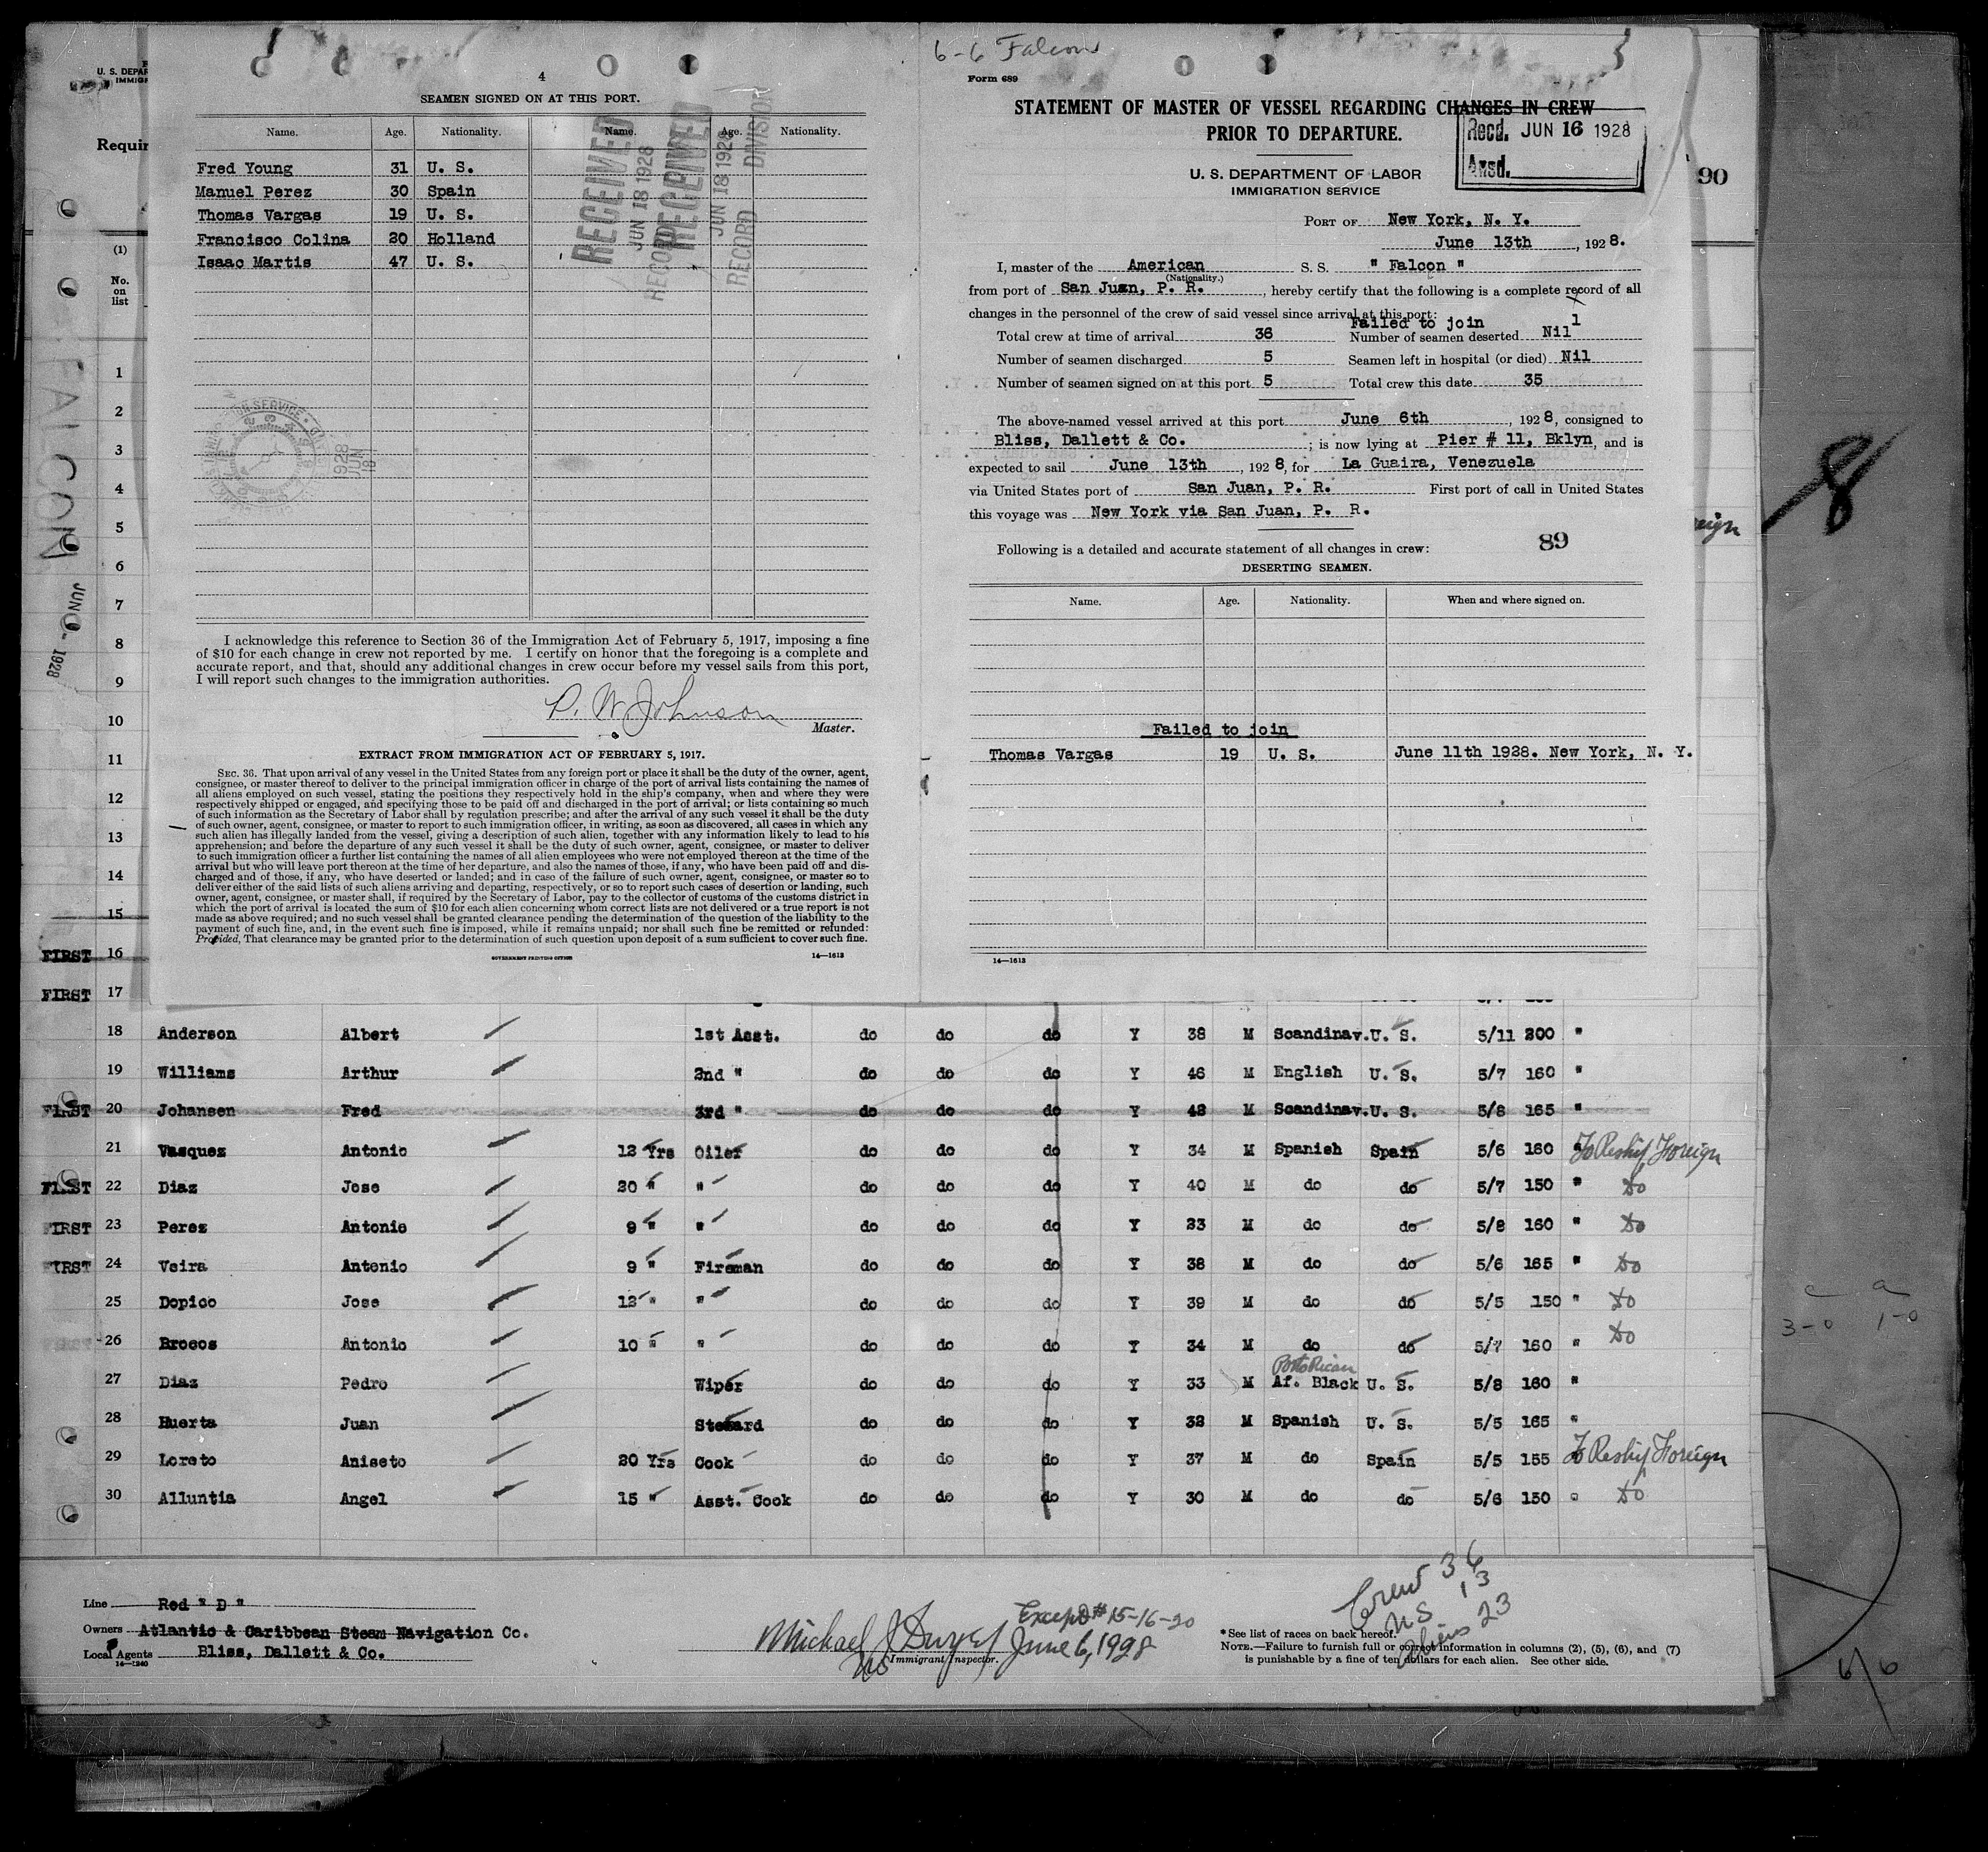 6-6 Falcon
4
SEAMEN SIGNED ON AT THIS PORT.
Name. Age. Nationality. Name. Age. Nationality.
Fred Young 31 U. S.
Manuel Perez 30 Spain
Thomas Vargas 19 U. S.
Francisco Colina 20 Holland
Isaac Martis 47 U. S.
RECEIVED
JUN 18 1928
RECORD
RECEIVED
JUN 18 1928
RECORD DIVISION
1928
JUN
18
I acknowledge this reference to Section 36 of the Immigration Act of February 5, 1917, imposing a fine
of $10 for each change in crew not reported by me. I certify on honor that the foregoing is a complete and
accurate report, and that, should any additional changes in crew occur before my vessel sails from this port,
I will report such changes to the immigration authorities.
P. W. Johnson
Master.
EXTRACT FROM IMMIGRATION ACT OF FEBRUARY 5, 1917.
SEC. 36. That upon arrival of any vessel in the United States from any foreign port or place it shall be the duty of the owner, agent,
consignee, or master thereof to deliver to the principal immigration officer in charge of the port of arrival lists containing the names of
all aliens employed on such vessel, stating the positions they respectively hold in the ship's company, when and where they were
respectively shipped or engaged, and specifying those to be paid off and discharged in the port of arrival; or lists containing so much
of such information as the Secretary of Labor shall by regulation prescribe; and after the arrival of any such vessel it shall be the duty
of such owner, agent, consignee, or master to report to such immigration officer, in writing, as soon as discovered, all cases in which any
such alien has illegally landed from the vessel, giving a description of such alien, together with any information likely to lead to his
apprehension; and before the departure of any such vessel it shall be the duty of such owner, agent, consignee, or master to deliver
to such immigration officer a further list containing the names of all alien employees who were not employed thereon at the time of the
arrival but who will leave port thereon at the time of her departure, and also the names of those, if any, who have been paid off and dis-
charged and of those, if any, who have deserted or landed; and in case of the failure of such owner, agent, consignee, or master so to
deliver either of the said lists of such aliens arriving and departing, respectively, or so to report such cases of desertion or landing, such
owner, agent, consignee, or master shall, if required by the Secretary of Labor, pay to the collector of customs of the customs district in
which the port of arrival is located the sum of $10 for each alien concerning whom correct lists are not delivered or a true report is not
made as above required; and no such vessel shall be granted clearance pending the determination of the question of the liability to the
payment of such fine, and, in the event such fine is imposed, while it remains unpaid; nor shall such fine be remitted or refunded:
Provided, That clearance may be granted prior to the determination of such question upon deposit of a sum sufficient to cover such fine.
GOVERNMENT PRINTING OFFICE 14—1613
Form 689
STATEMENT OF MASTER OF VESSEL REGARDING CHANGES IN CREW
PRIOR TO DEPARTURE.
Recd. JUN 16 1928
Awsd.
U. S. DEPARTMENT OF LABOR
IMMIGRATION SERVICE
PORT OF New York, N. Y.
June 13th, 1928.
I, master of the American S. S. " Falcon "
(Nationality.)
from port of San Juan, P. R., hereby certify that the following is a complete record of all
changes in the personnel of the crew of said vessel since arrival at this port:
Failed to join 1
Total crew at time of arrival 36 Number of seamen deserted Nil
Number of seamen discharged 5 Seamen left in hospital (or died) Nil
Number of seamen signed on at this port 5 Total crew this date 35
The above-named vessel arrived at this port June 6th, 1928, consigned to
Bliss, Dallett & Co.; is now lying at Pier # 11, Bklyn, and is
expected to sail June 13th, 1928, for La Guaira, Venezuela
via United States port of San Juan, P. R. First port of call in United States
this voyage was New York via San Juan, P. R.
Following is a detailed and accurate statement of all changes in crew: 89
DESERTING SEAMEN.
Name. Age. Nationality. When and where signed on.
Failed to join
Thomas Vargas 19 U. S. June 11th 1928. New York, N. Y.
14—1613
90
8
U. S. DEPAR
IMMIGR
Requir
(1)
No.
on
list
FALCON
1928
1
2
3
4
5
6
7
8
9
10
11
12
13
14
15
FIRST 16
FIRST 17
18 Anderson Albert 1st Asst. do do do Y 38 M Scandinav. U. S. 5/11 200 "
19 Williams Arthur 2nd " do do do Y 46 M English U. S. 5/7 160 "
FIRST 20 Johansen Fred 3rd " do do do Y 42 M Scandinav. U. S. 5/8 165 "
21 Vasquez Antonio 12 Yrs Oiler do do do Y 34 M Spanish Spain 5/6 160 " To Reship Foreign
FIRST 22 Diaz Jose 20 " " do do do Y 40 M do do 5/7 150 " do
FIRST 23 Perez Antonio 9 " " do do do Y 23 M do do 5/8 160 " do
FIRST 24 Veira Antonio 9 " Fireman do do do Y 38 M do do 5/6 165 " do
25 Dopico Jose 12 " " do do do Y 39 M do do 5/5 150 " do
26 Brocos Antonio 10 " " do do do Y 34 M do do 5/7 160 " do
Porto Rican
27 Diaz Pedro Wiper do do do Y 33 M Af. Black U. S. 5/8 160 "
28 Huerta Juan Steward do do do Y 32 M Spanish U. S. 5/5 165 "
29 Loreto Aniseto 20 Yrs Cook do do do Y 37 M do Spain 5/5 155 " To Reship Foreign
30 Alluntia Angel 15 " Asst. Cook do do do Y 30 M do do 5/6 150 " do
3-0 1-0
Line Red " D "
Owners Atlantic & Caribbean Steam Navigation Co.
Local Agents Bliss, Dallett & Co.
14—1240
Except # 15-16-20
June 6, 1928
Immigrant Inspector.
Crew 36
US 13
Aliens 23
* See list of races on back hereof.
NOTE.—Failure to furnish full or correct information in columns (2), (5), (6), and (7)
is punishable by a fine of ten dollars for each alien. See other side.
6/6